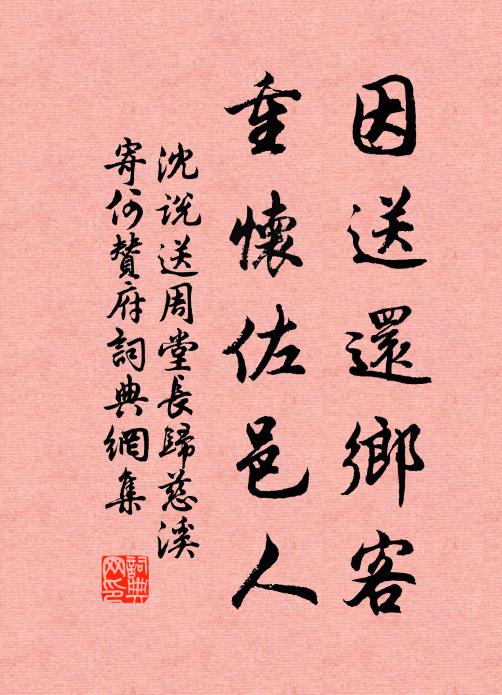 因送還鄉客
重懷佐邑人
沈說送周堂長歸慈溪
寄何贊府詞典網集
詞典网印